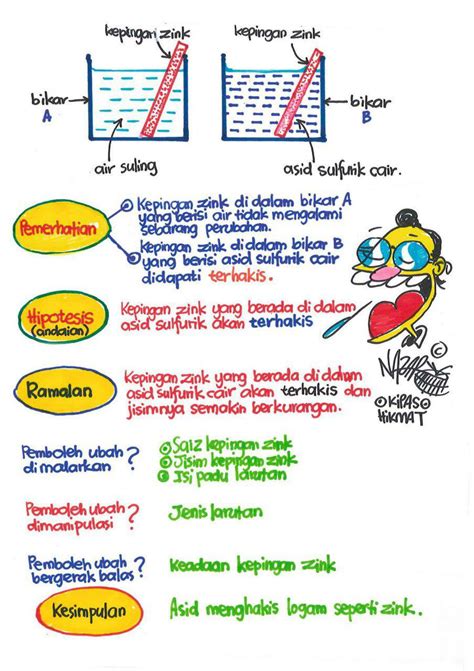 kepingan zink
kepingan zink
bikar
A
bikar
B
air suling
asid sulfurik cair.
Pemerhatian
Kepingan zink di dalam bikar A
yang berisi air tidak mengalami
sebarang perubahan.
Kepingan zink di dalam bikar B
yang berisi asid sulfurik cair
didapati terhakis.
Hipotesis
(andaian)
Kepingan zink yang berada di dalam
asid sulfurik akan terhakis
©
Ramalan
Kepingan zink yang berada di dalam
asid sulfurik cair akan terhakis dan
jisimnya semakin berkurangan.
KIPAS
HIKMAT
Pemboleh ubah
di malarkan ?
Saiz kepingan zink
Jisim kepingan zink
Isi padu larutan
Pemboleh ubah
dimanipulasi ?
Jenis larutan
Pemboleh ubah
bergerak balas ?
Keadaan kepingan zink
Kesimpulan
Asid menghakis logam seperti zink.